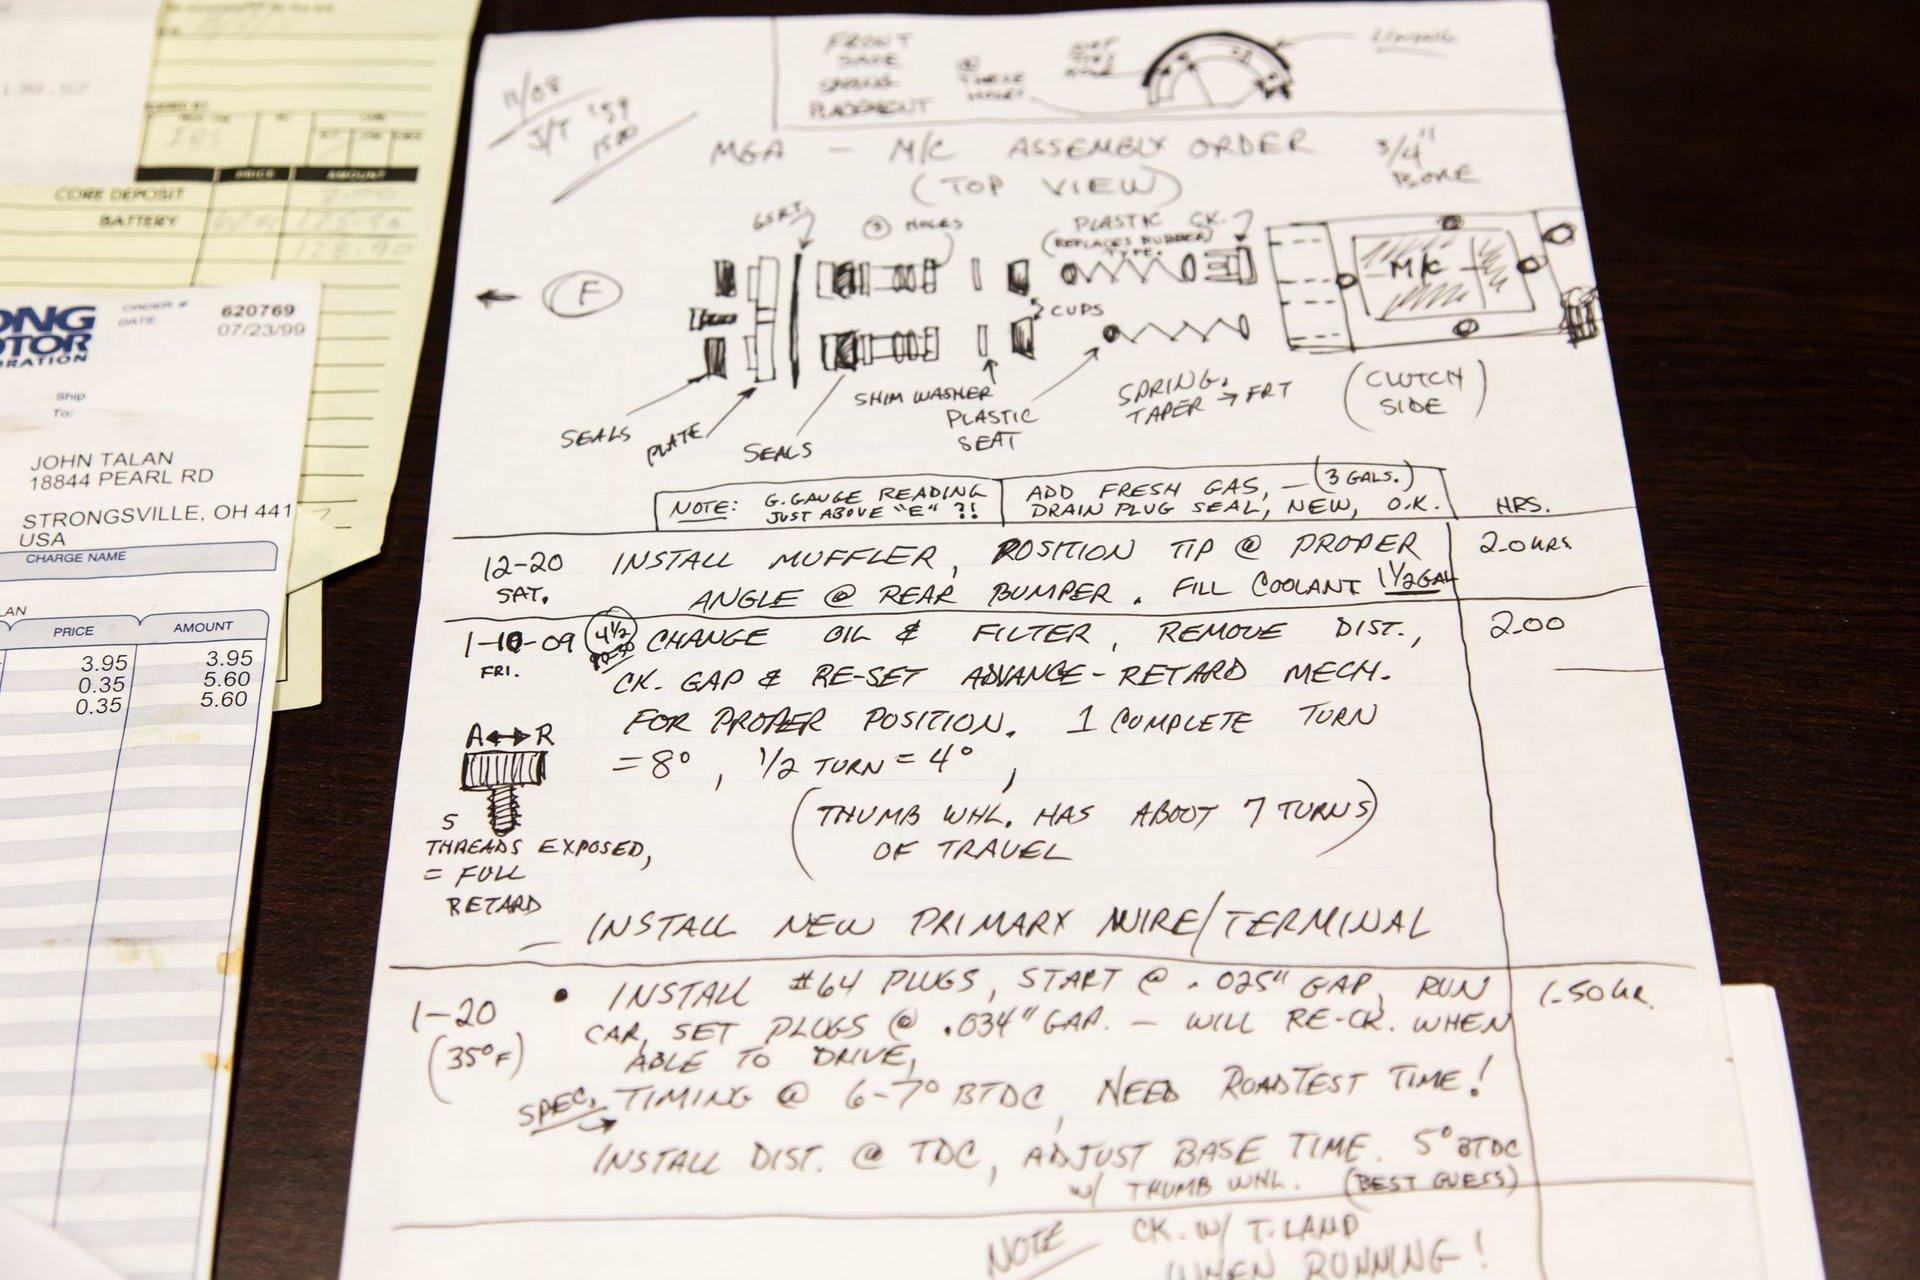 130.87
CORE DEPOSIT
BATTERY
PRICE
AMOUNT
2.00
128.90
ORDER #
620769
DATE
07/23/99
ONG
OTOR
ORATION
Ship
To:
JOHN TALAN
18844 PEARL RD
STRONGSVILLE, OH 441
USA
CHARGE NAME
LAN
PRICE
AMOUNT
3.95
3.95
0.35
5.60
0.35
5.60
11/08
J/T '59
1500
FRONT
SHOE
SPRING
PLACEMENT
@
THESE
HOLES
NOT
THIS
LINING
MGA - M/C ASSEMBLY ORDER
(TOP VIEW)
3/4"
BORE
GSKT
HOLES
PLASTIC CK.
(REPLACES RUBBER)
TYPE.
F
M/C
CUPS
SHIM WASHER
SEALS
PLATE
SEALS
PLASTIC
SEAT
SPRING.
TAPER → FRT
(CLUTCH
SIDE)
NOTE: G.GAUGE READING
JUST ABOVE "E" ?!
ADD FRESH GAS, - (3 GALS.)
DRAIN PLUG SEAL, NEW, O.K.
HRS.
12-20
SAT.
INSTALL MUFFLER, POSITION TIP @ PROPER
ANGLE @ REAR BUMPER. FILL COOLANT 1 1/2 GAL
2.0 HRS
1-10-09
FRI.
4 1/2
CHANGE OIL & FILTER, REMOVE DIST.,
CK. GAP & RE-SET ADVANCE-RETARD MECH.
FOR PROPER POSITION. 1 COMPLETE TURN
= 8°, 1/2 TURN = 4°,
(THUMB WHL. HAS ABOUT 7 TURNS)
OF TRAVEL
2.00
A↔R
5
THREADS EXPOSED,
= FULL
RETARD
— INSTALL NEW PRIMARY WIRE/TERMINAL
1-20
(35°F)
• INSTALL #64 PLUGS, START @ .025" GAP, RUN
CAR, SET PLUGS @ .034" GAP. - WILL RE-CK. WHEN
ABLE TO DRIVE,
1.50 HR.
SPEC. → TIMING @ 6-7° BTDC, NEED ROADTEST TIME!
INSTALL DIST. @ TDC, ADJUST BASE TIME. 5° BTDC
W/ THUMB WHL. (BEST GUESS)
NOTE CK. W/ T. LAND
WHEN RUNNING!